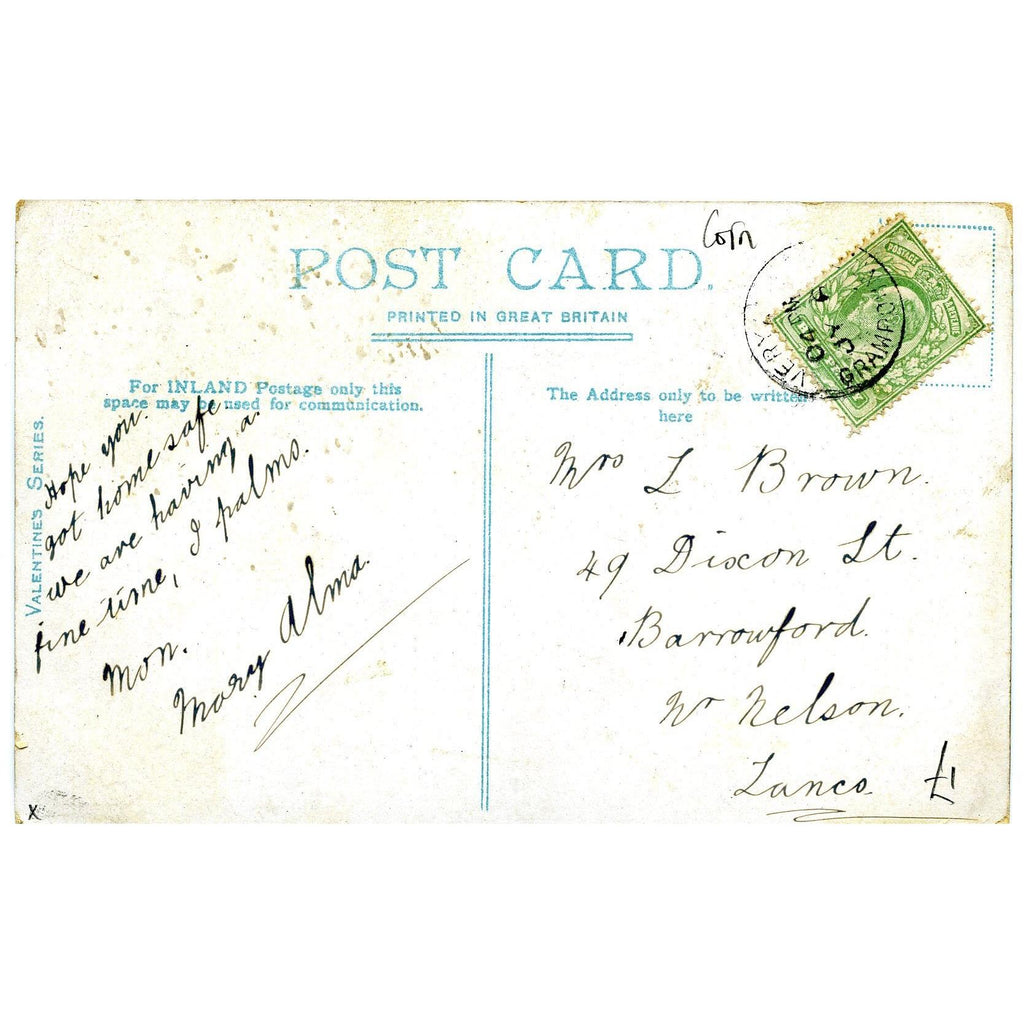 Corn
POST CARD.
PRINTED IN GREAT BRITAIN
For INLAND Postage only this
space may be used for communication.
The Address only to be written
here
VALENTINE'S SERIES.
Hope you.
got home safe
we are having a.
fine time, I palms.
Mon.
Mary Alma.
Mrs L Brown.
49 Dixon St.
Barrowford.
Nr Nelson.
Lancs
£1
X
GRAMPOUND
JY
04
POSTAGE